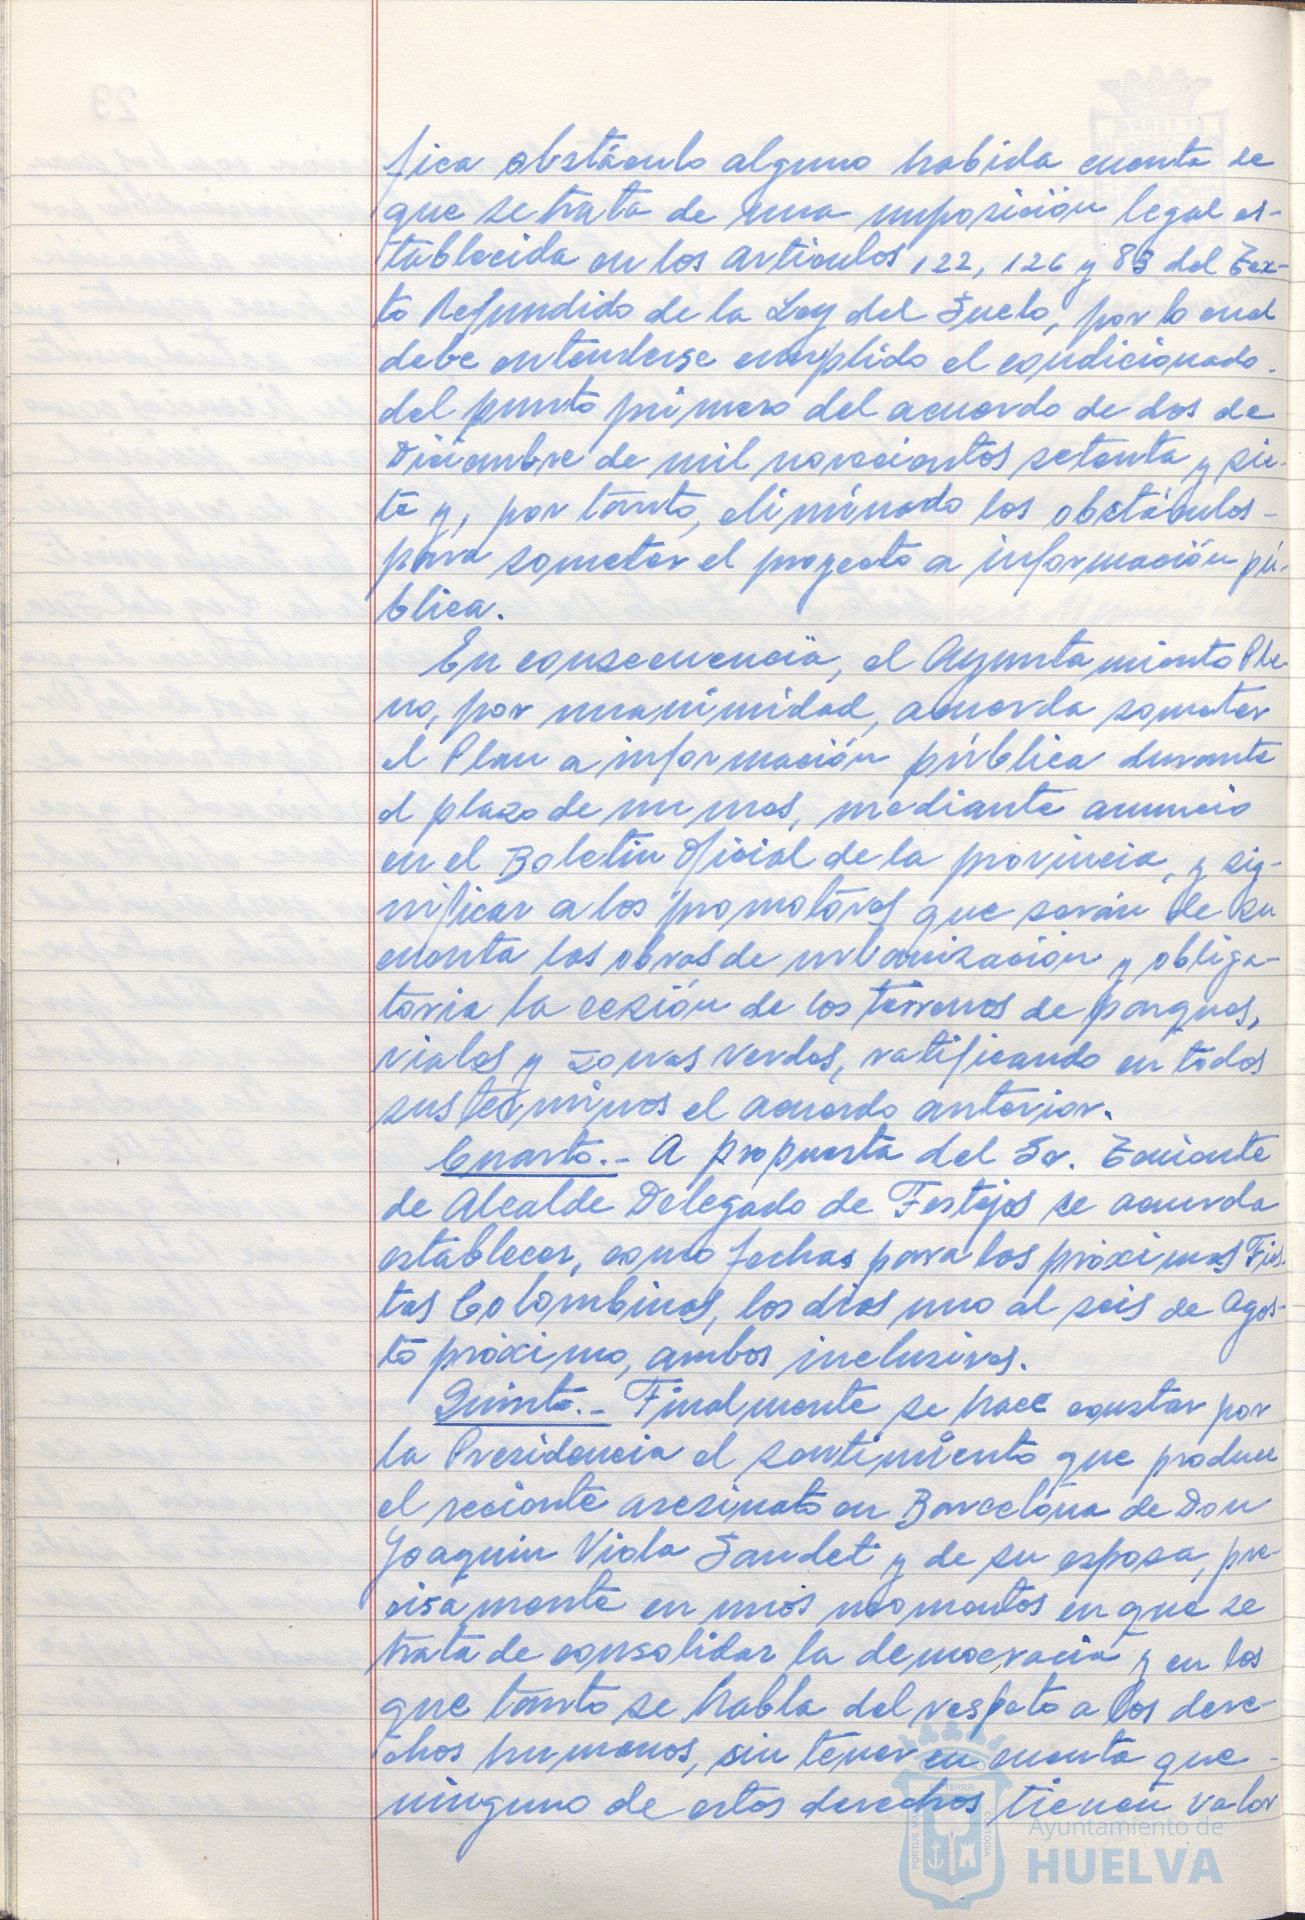 fica obstáculo alguno habida cuenta de
que se trata de una imposición legal es-
tablecida en los artículos 122, 126 y 83 del Tex-
to Refundido de la Ley del Suelo, por lo cual
debe entenderse cumplido el condicionado
del punto primero del acuerdo de dos de
Diciembre de mil novecientos setenta y sie-
te y, por tanto, eliminado los obstáculos-
para someter el proyecto a información pú-
blica.
En consecuencia, el Ayuntamiento Ple-
no, por unanimidad, acuerda someter
el Plan a información pública durante
el plazo de un mes, mediante anuncio
en el Boletín Oficial de la provincia, y sig-
nificar a los promotores que serán de su
cuenta las obras de urbanización y obliga-
toria la cesión de los terrenos de parques,
viales y zonas verdes, ratificando en todos
sus términos el acuerdo anterior.
Cuarto.- A propuesta del Sr. Teniente
de Alcalde Delegado de Festejos se acuerda
establecer, como fechas para las próximas Fies-
tas Colombinas, los días uno al seis de Agos-
to próximo, ambos inclusives.
Quinto.- Finalmente se hace constar por
la Presidencia el sentimiento que produce
el reciente asesinato en Barcelona de Don
Joaquin Viola Saudet y de su esposa, pre-
cisamente en unos momentos en que se
trata de consolidar la democracia y en los
que tanto se habla del respeto a los dere-
chos humanos, sin tener en cuenta que -
ninguno de estos derechos tienen valor
Ayuntamiento de
HUELVA